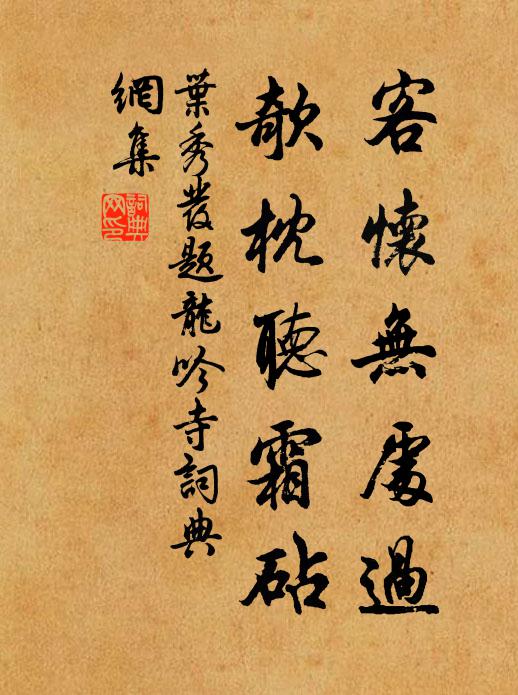 客懷無處過
欹枕聽霜砧
葉秀發題龍吟寺詞典
網集
詞典網印